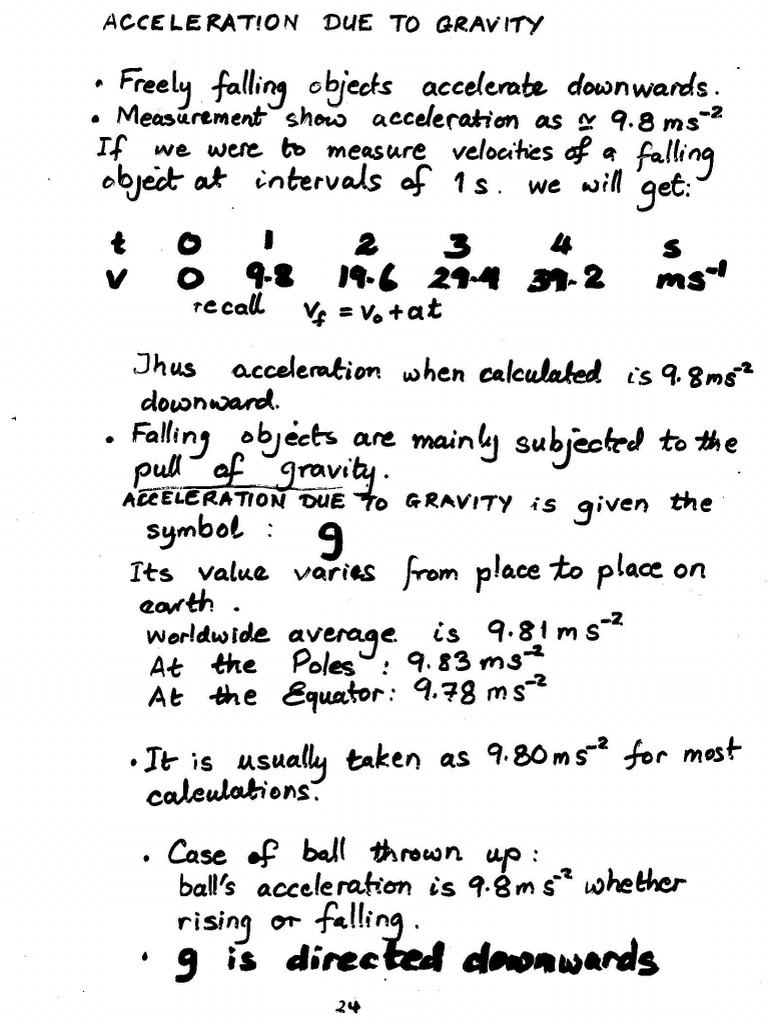 ACCELERATION DUE TO GRAVITY
• Freely falling objects accelerate downwards.
• Measurement show acceleration as ≃ 9.8 ms⁻²
If we were to measure velocities of a falling
object at intervals of 1 s. we will get:
t 0 1 2 3 4 s
v 0 9.8 19.6 29.4 39.2 ms⁻¹
recall v_f = v₀ + at
Thus acceleration when calculated is 9.8 ms⁻²
downward.
• Falling objects are mainly subjected to the
pull of gravity.
ACCELERATION DUE TO GRAVITY is given the
symbol : g
Its value varies from place to place on
earth.
Worldwide average is 9.81 m s⁻²
At the Poles : 9.83 ms⁻²
At the Equator: 9.78 ms⁻²
• It is usually taken as 9.80 ms⁻² for most
calculations.
• Case of ball thrown up:
ball's acceleration is 9.8 m s⁻² whether
rising or falling.
• g is directed downwards
24